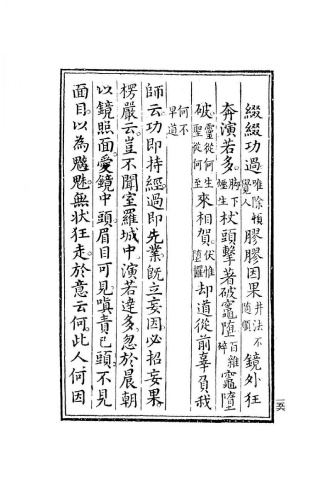 綴綴功過唯除頓覺人膠膠因果并法不隨順鏡外狂
奔演若多脚下煙生杖頭擊著破竈墮百雜碎竈墮
破靈從何生聖從何至來相賀伏惟却道從前辜負我
何不早道
師云。功即持經。過即先業。既立妄因。必招妄果。
楞嚴云。豈不聞室羅城中。演若達多。忽於晨朝
以鏡照面。愛鏡中頭。眉目可見。嗔責己頭。不見
面目。以為魑魅。無狀狂走。於意云何。此人何因
一五六